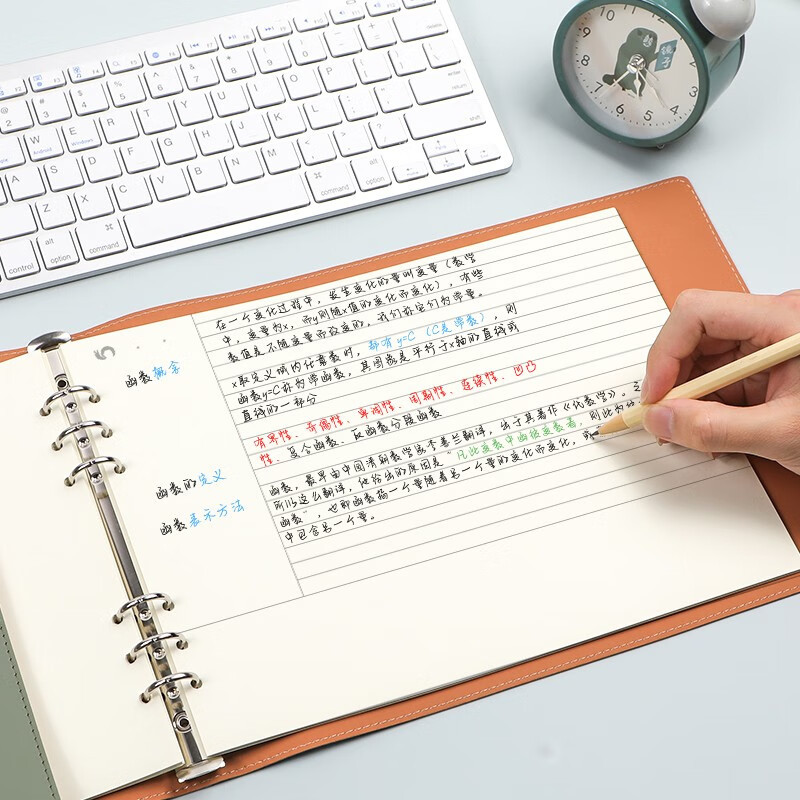 command option
control alt option command
shift
return
enter
Q W E R T Y U I O P
A S D F G H J K L
Z X C V B N M
10 11 12 2 3 4 5 6 7 8 9
函数概念
函数的定义
函数表示方法
在一个变化过程中，发生变化的量叫变量（数学
中，变量为x，而y则随x值的变化而变化），有些
数值是不随变量而改变的，我们称它们为常量。
x取定义域内任意数时，都有y=C（C是常数），则
函数y=C称为常函数，其图像是平行于x轴的直线或
直线的一部分
有界性、奇偶性、单调性、周期性、连续性、凹凸
性。复合函数、反函数分段函数
函数，最早由中国清朝数学家李善兰翻译，出于其著作《代数学》。之
所以这么翻译，他给出的原因是“凡此变数中函彼变数者，则此为
函数”，也即函数指一个量随着另一个量的变化而变化，或
中包含另一个量。